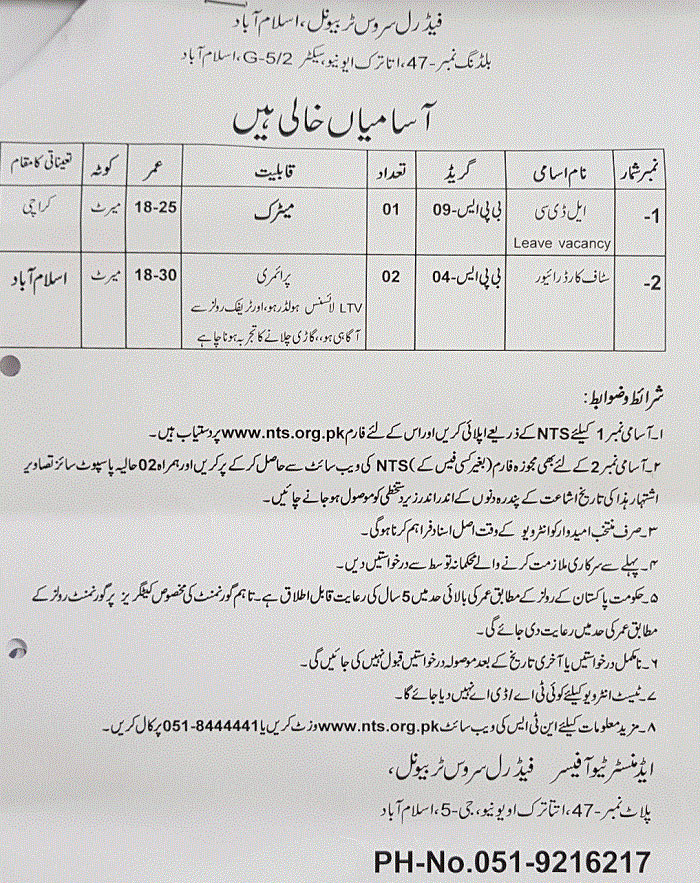 فیڈرل سروس ٹریبونل، اسلام آباد
بلڈنگ نمبر-47، اتاترک ایونیو، سیکٹر G-5/2، اسلام آباد
آسامیاں خالی ہیں
نمبر شمار نام اسامی گریڈ تعداد قابلیت عمر کوٹہ تعیناتی کا مقام
1- ایل ڈی سی بی پی ایس-09 01 میٹرک 18-25 میرٹ کراچی
Leave vacancy
2- سٹاف کار ڈرائیور بی پی ایس-04 02 پرائمری 18-30 میرٹ اسلام آباد
LTV لائسنس ہولڈر ہو، اور ٹریفک رولز سے
آگاہی ہو،، گاڑی چلانے کا تجربہ ہونا چاہے
شرائط و ضوابط:
۱۔ آسامی نمبر 1 کیلئے NTS کے ذریعے اپلائی کریں اور اس کے لئے فارم www.nts.org.pk پر دستیاب ہیں۔
۲۔ آسامی نمبر 2 کے لئے بھی مجوزہ فارم (بغیر کسی فیس کے) NTS کی ویب سائٹ سے حاصل کر کے پر کریں اور ہمراہ 02 حالیہ پاسپوٹ سائز تصاویر
اشتہار ہذا کی تاریخ اشاعت کے پندرہ دنوں کے اندر اندر زیر دستخطی کو موصول ہو جانے چائیں۔
۳۔ صرف منتخب امیدوار کو انٹرویو کے وقت اصل اسناد فراہم کرنا ہوگی۔
۴۔ پہلے سے سرکاری ملازمت کرنے والے محکمانہ توسط سے درخواستیں دیں۔
۵۔ حکومت پاکستان کے رولز کے مطابق عمر کی بالائی حد میں 5 سال کی رعایت قابل اطلاق ہے۔ تاہم گورنمنٹ کی مخصوص کیٹگریز پر گورنمنٹ رولز کے
مطابق عمر کی حد میں رعایت دی جائے گی۔
۶۔ نامکمل درخواستیں یا آخری تاریخ کے بعد موصولہ درخواستیں قبول نہیں کی جائیں گی۔
۷۔ ٹیسٹ انٹرویو کیلئے کوئی ٹی اے/ڈی اے نہیں دیا جائے گا۔
۸۔ مزید معلومات کیلئے این ٹی ایس کی ویب سائٹ www.nts.org.pk وزٹ کریں یا 051-8444441 پر کال کریں۔
ایڈمنسٹریٹو آفیسر فیڈرل سروس ٹریبونل،
پلاٹ نمبر-47، اتاترک اویونیو، جی-5، اسلام آباد
PH-No.051-9216217